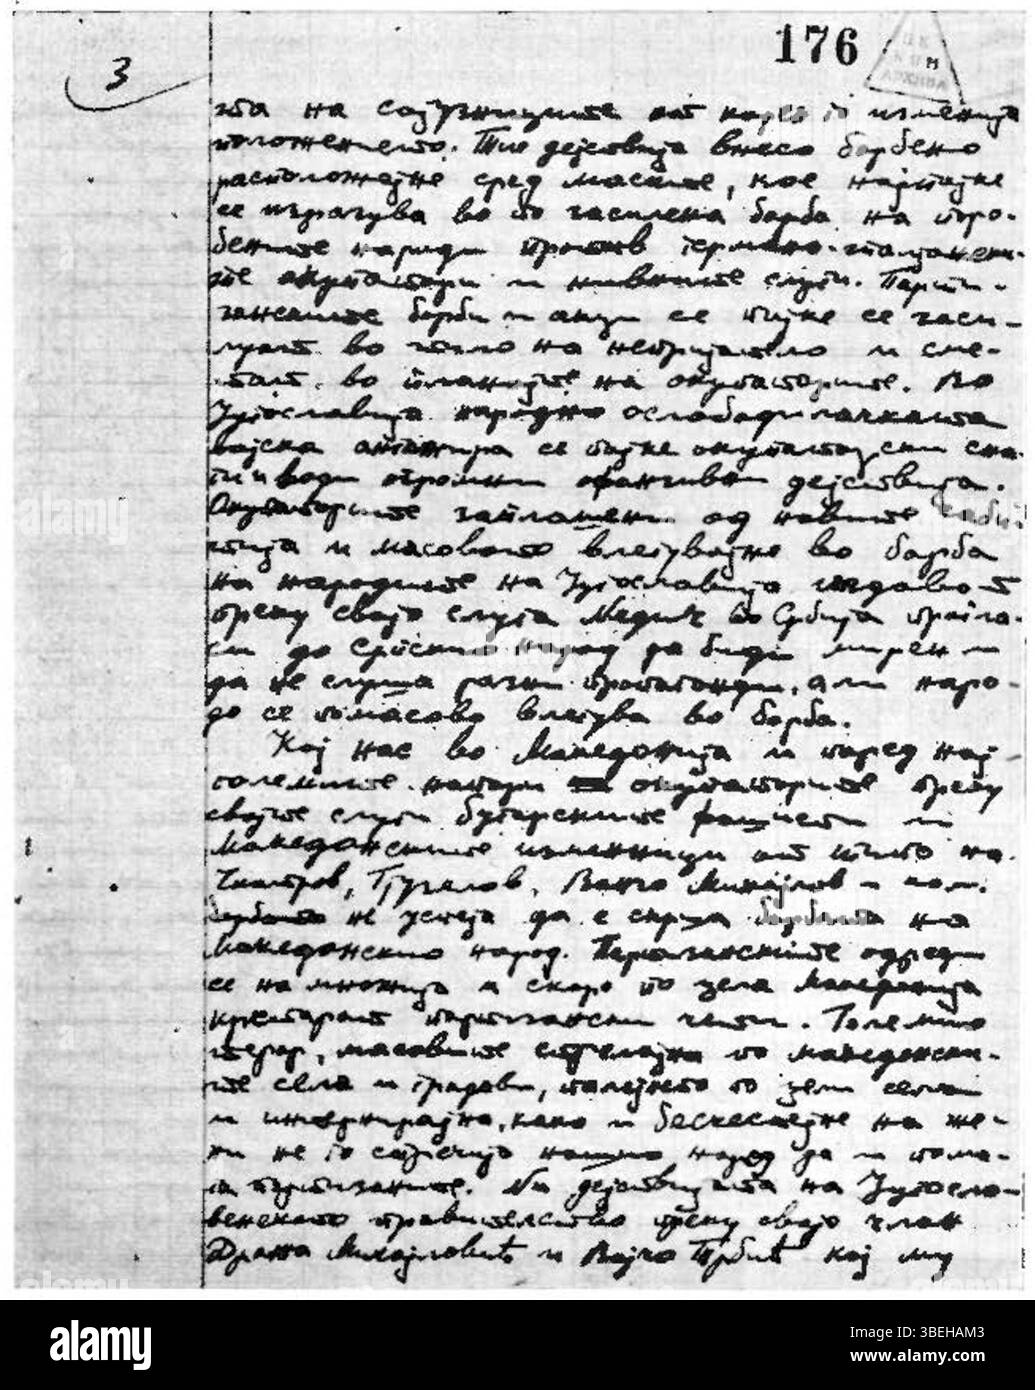 3
176
ЦК
КПМ
АРХИВА
та на сојузниците от корен го изменија
положението. Тие дејствија внесо борбено
расположејне сред масите, кое најпојке
се изразува во по засилена борба на поро-
бените народи против германо-италијански-
те окупатори и нивните слуги. Парти-
занските борби и акции се појке се заси-
луат во тило на непријатело и сме-
таат во планојте на окупаторите. Во
Југославија народно ослободилачката
војска ангажира се појке окупаторски сна-
ги и води огромни офанзивни дејствија.
Окупаторите заплашени од новите
и масовото влегувајне во борба
на народите на Југославија неодавно
преку својо слуга Недич во Србија пригла-
си до Српскиј народ да биди мирен и
да не слуша разни пропаганди, али наро-
до се помасово влегува во борба.
Кај нас во Македонија и поред нај
големите напори окупаторите преку
својте слуги бугарските фашисти и
Македонските изменници от типо на
Чкатров, Гузелов, Ванчо Михајлов и ком.
не успеја да е скрша борбата на
Македонскио народ. Партизанските одреди
се на множија и скоро по цела Македонија
крстарат партизански чети. Големио
терор, масовите стрелајна по македонски-
те села и градови, палејнето по цели села
и интернирајна, како и бесчестејне на же-
ни не го спречија нашио народ да и пома-
га партизаните. Ни дејствијата на Југосло-
венското правителство преку својо член
Дража Михајловић и Војчо Трбић кај му
alamy
Image ID: 3BEHAM3
www.alamy.com